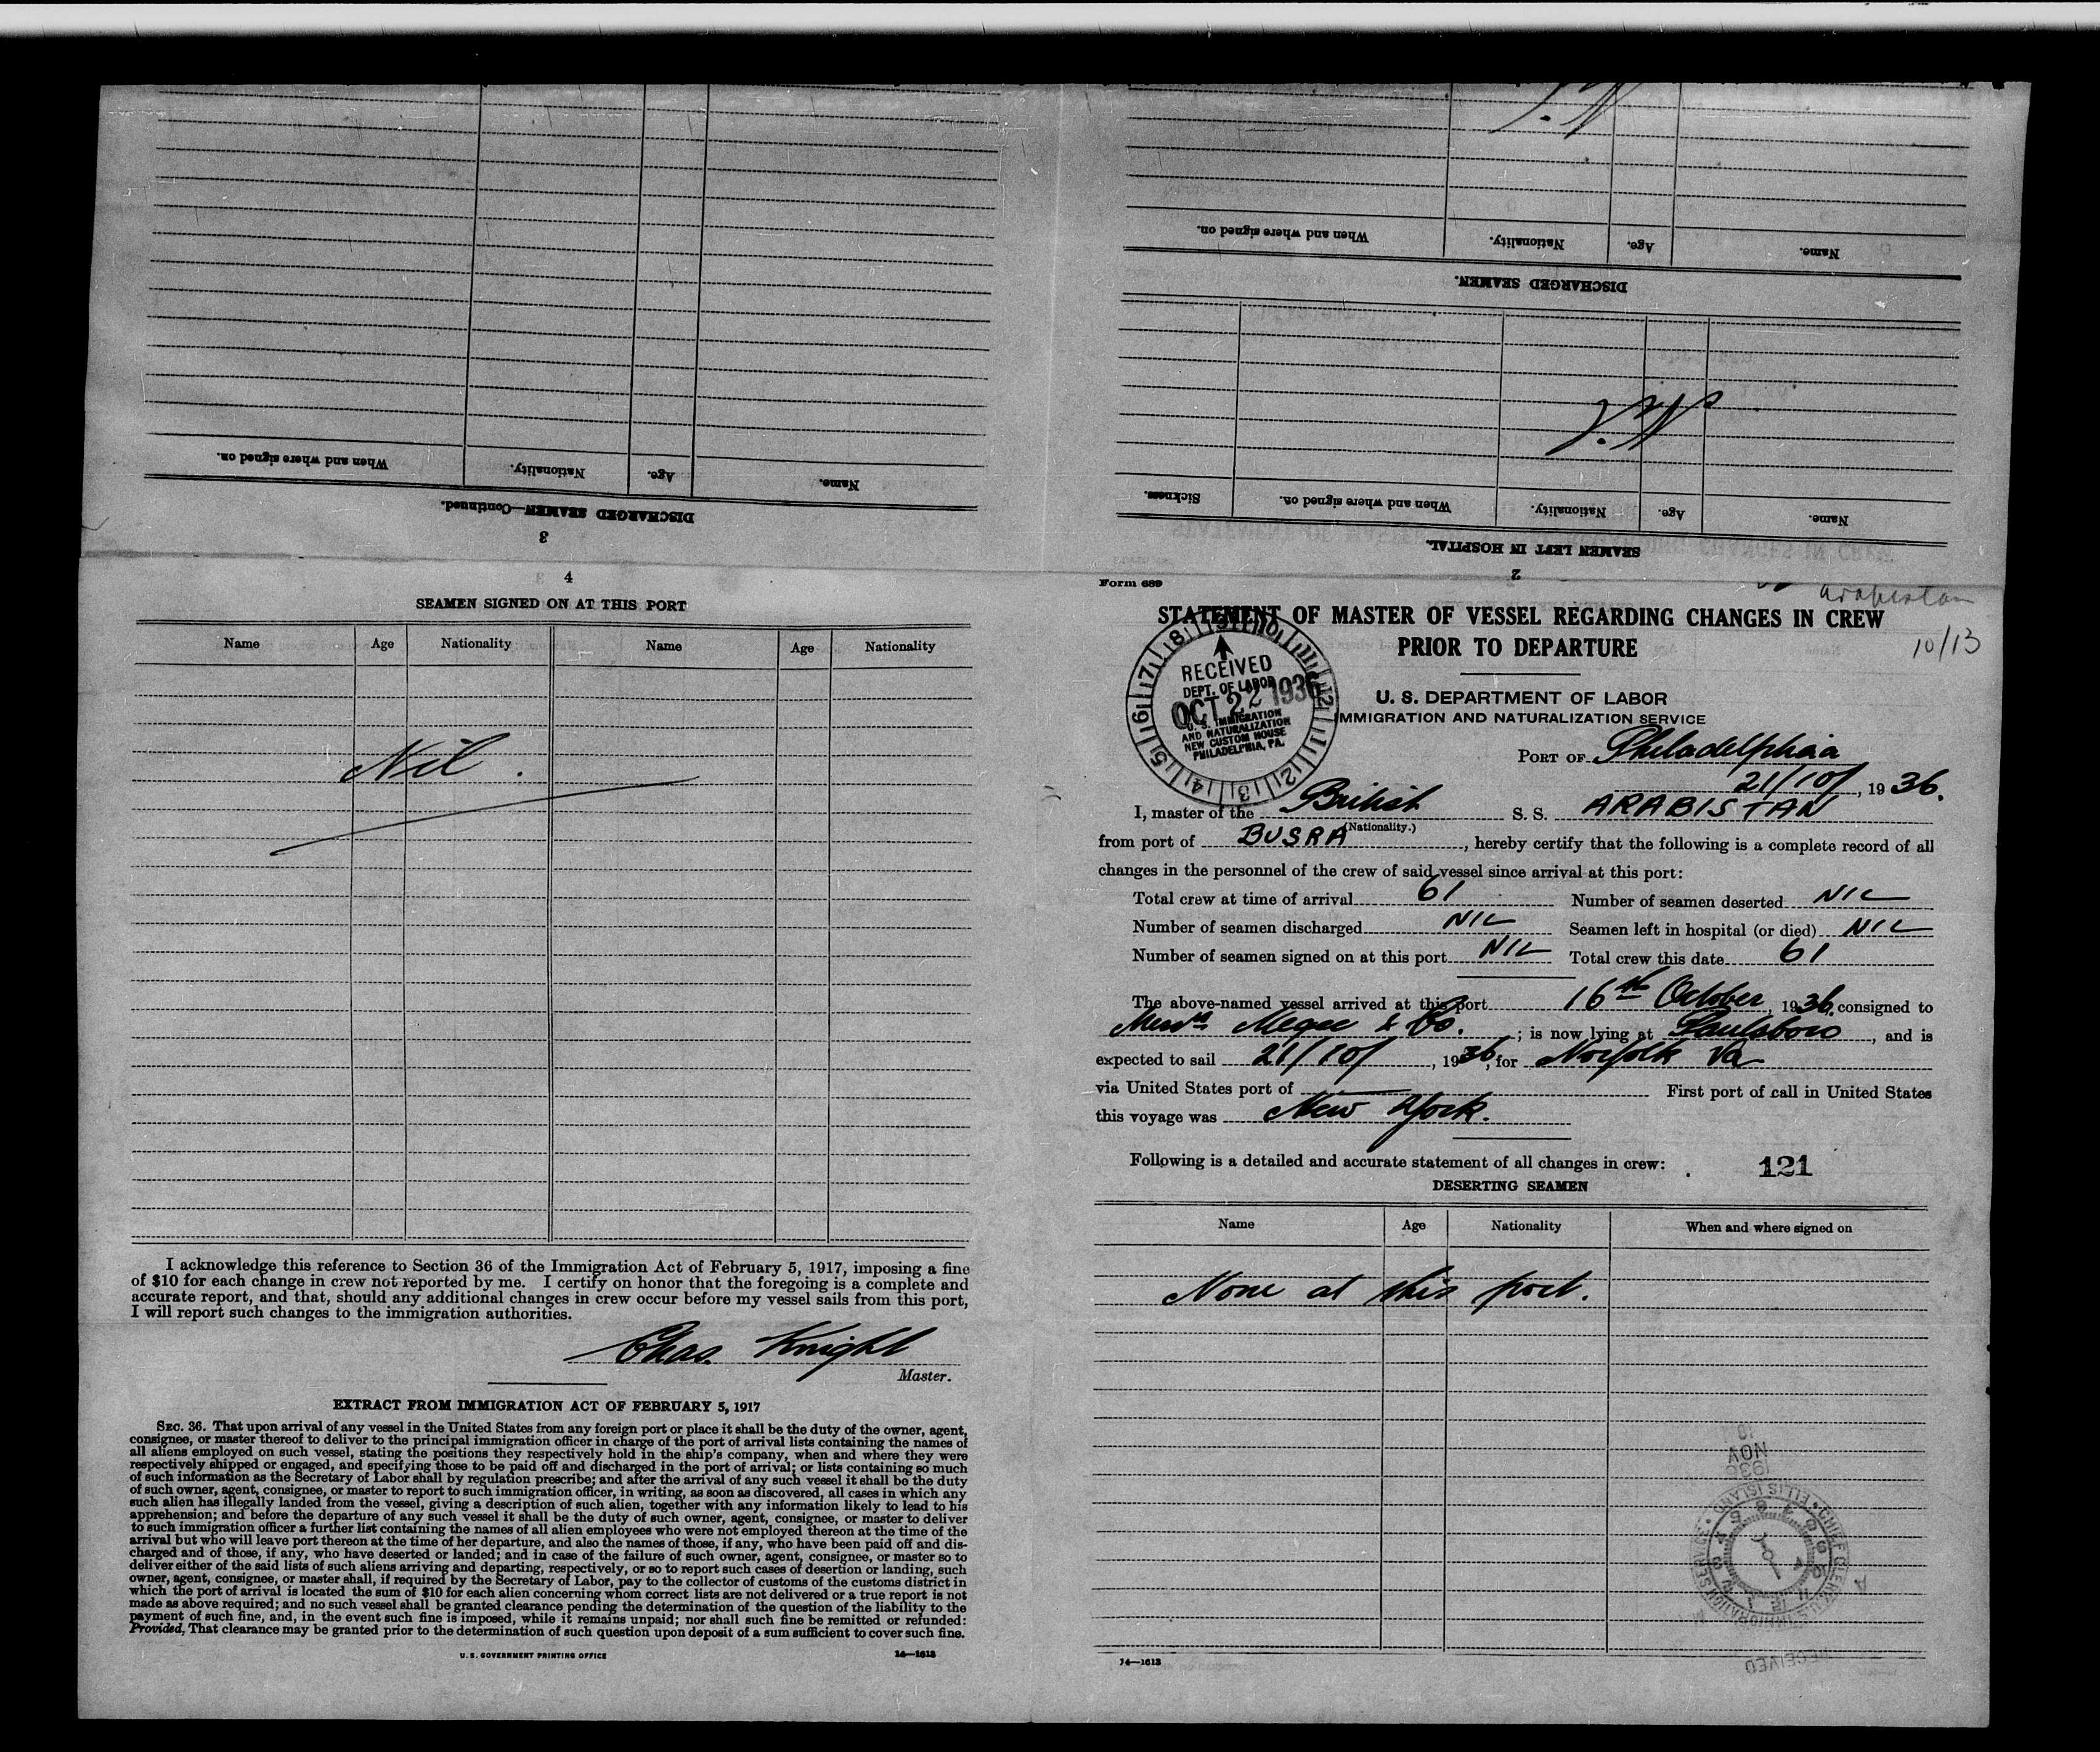 When and where signed on.
Nationality.
Age.
Name.
DISCHARGED SEAMEN—Continued.
3
Nil
When and where signed on.
Nationality.
Age.
Name.
DISCHARGED SEAMEN.
Nil
Sickness.
When and where signed on.
Nationality.
Age.
Name.
SEAMEN LEFT IN HOSPITAL.
2
4
SEAMEN SIGNED ON AT THIS PORT
Name Age Nationality Name Age Nationality
Nil.
I acknowledge this reference to Section 36 of the Immigration Act of February 5, 1917, imposing a fine
of $10 for each change in crew not reported by me. I certify on honor that the foregoing is a complete and
accurate report, and that, should any additional changes in crew occur before my vessel sails from this port,
I will report such changes to the immigration authorities.
Chas. Knight
Master.
EXTRACT FROM IMMIGRATION ACT OF FEBRUARY 5, 1917
SEC. 36. That upon arrival of any vessel in the United States from any foreign port or place it shall be the duty of the owner, agent,
consignee, or master thereof to deliver to the principal immigration officer in charge of the port of arrival lists containing the names of
all aliens employed on such vessel, stating the positions they respectively hold in the ship's company, when and where they were
respectively shipped or engaged, and specifying those to be paid off and discharged in the port of arrival; or lists containing so much
of such information as the Secretary of Labor shall by regulation prescribe; and after the arrival of any such vessel it shall be the duty
of such owner, agent, consignee, or master to report to such immigration officer, in writing, as soon as discovered, all cases in which any
such alien has illegally landed from the vessel, giving a description of such alien, together with any information likely to lead to his
apprehension; and before the departure of any such vessel it shall be the duty of such owner, agent, consignee, or master to deliver
to such immigration officer a further list containing the names of all alien employees who were not employed thereon at the time of the
arrival but who will leave port thereon at the time of her departure, and also the names of those, if any, who have been paid off and dis-
charged and of those, if any, who have deserted or landed; and in case of the failure of such owner, agent, consignee, or master so to
deliver either of the said lists of such aliens arriving and departing, respectively, or so to report such cases of desertion or landing, such
owner, agent, consignee, or master shall, if required by the Secretary of Labor, pay to the collector of customs of the customs district in
which the port of arrival is located the sum of $10 for each alien concerning whom correct lists are not delivered or a true report is not
made as above required; and no such vessel shall be granted clearance pending the determination of the question of the liability to the
payment of such fine, and, in the event such fine is imposed, while it remains unpaid; nor shall such fine be remitted or refunded:
Provided, That clearance may be granted prior to the determination of such question upon deposit of a sum sufficient to cover such fine.
U. S. GOVERNMENT PRINTING OFFICE 14—1613
Form 689
Arabistan
STATEMENT OF MASTER OF VESSEL REGARDING CHANGES IN CREW
PRIOR TO DEPARTURE
10/13
RECEIVED
DEPT. OF LABOR
OCT 22 1936
U. S. IMMIGRATION
AND NATURALIZATION
NEW CUSTOM HOUSE
PHILADELPHIA, PA.
U. S. DEPARTMENT OF LABOR
IMMIGRATION AND NATURALIZATION SERVICE
PORT OF Philadelphia
21/10/, 19 36.
I, master of the British S. S. ARABISTAN
(Nationality.)
from port of BUSRA, hereby certify that the following is a complete record of all
changes in the personnel of the crew of said vessel since arrival at this port:
Total crew at time of arrival 61 Number of seamen deserted NIL
Number of seamen discharged NIL Seamen left in hospital (or died) NIL
Number of seamen signed on at this port NIL Total crew this date 61
The above-named vessel arrived at this port 16th October, 1936, consigned to
Messrs Megee & Co.; is now lying at Paulsboro, and is
expected to sail 21/10/, 1936, for Norfolk Va
via United States port of First port of call in United States
this voyage was New York.
Following is a detailed and accurate statement of all changes in crew: 121
DESERTING SEAMEN
Name Age Nationality When and where signed on
None at this port.
NOV
1936
ELLIS ISLAND
CHIEF CLERK
RECEIVED
14—1613